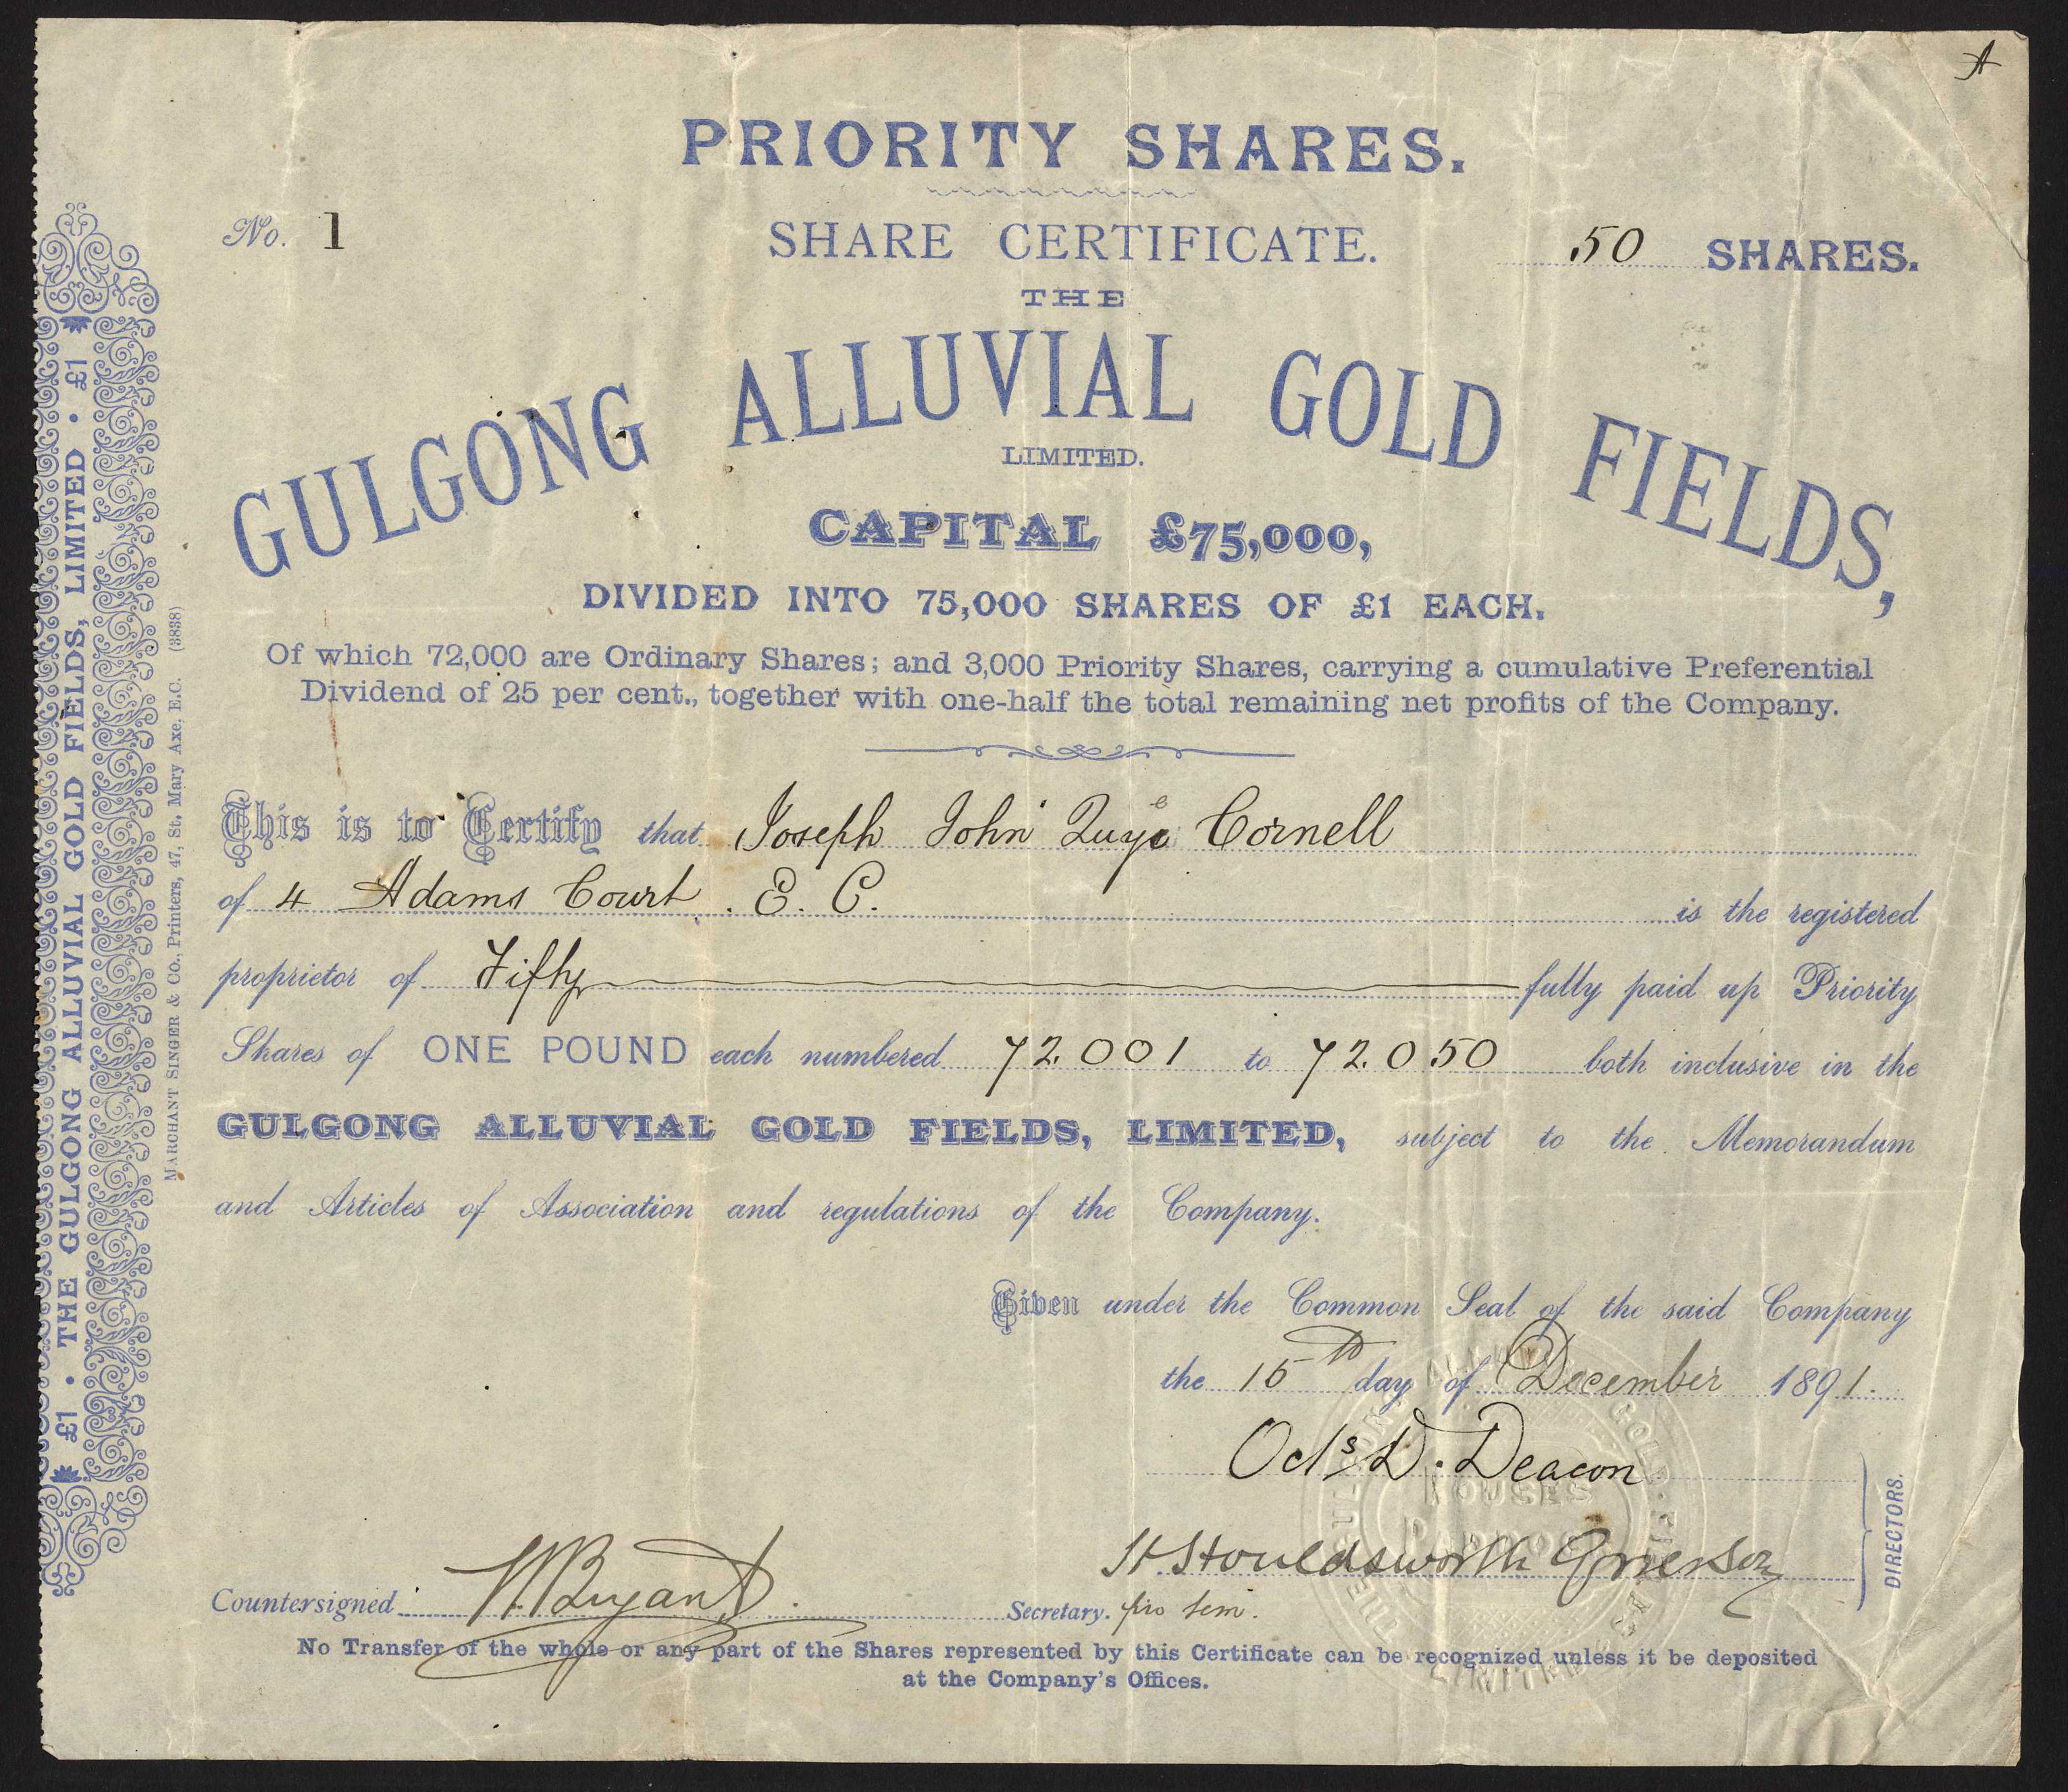 A
PRIORITY SHARES.
No. 1
SHARE CERTIFICATE.
50 SHARES.
THE
GULGONG ALLUVIAL GOLD FIELDS,
LIMITED.
CAPITAL £75,000,
DIVIDED INTO 75,000 SHARES OF £1 EACH.
Of which 72,000 are Ordinary Shares; and 3,000 Priority Shares, carrying a cumulative Preferential
Dividend of 25 per cent., together with one-half the total remaining net profits of the Company.
This is to Certify that Joseph John Quye Cornell
of 4 Adams Court. E. C. is the registered
proprietor of Fifty fully paid up Priority
Shares of ONE POUND each numbered 72.001 to 72.050 both inclusive in the
GULGONG ALLUVIAL GOLD FIELDS, LIMITED, subject to the Memorandum
and Articles of Association and regulations of the Company.
Given under the Common Seal of the said Company
the 15th day of December 1891.
D. Deacon
DIRECTORS.
Countersigned Bryant Secretary. pro tem.
No Transfer of the whole or any part of the Shares represented by this Certificate can be recognized unless it be deposited
at the Company's Offices.
£1 • THE GULGONG ALLUVIAL GOLD FIELDS, LIMITED • £1
MARCHANT SINGER & CO., Printers, 47, St. Mary Axe, E.C. (3838)